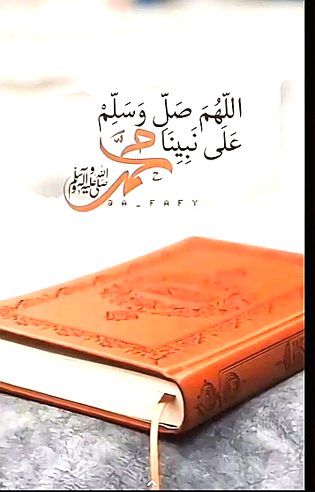 اللّهُمَ صَلِّ وَسَلِّمْ
عَلَى نَبِينَا مُحمَّد
صلى الله عليه وآله وسلم
@A_FAFY